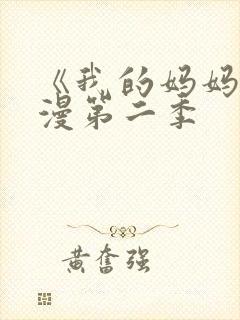 《我的妈妈
漫第二季
黄奋强